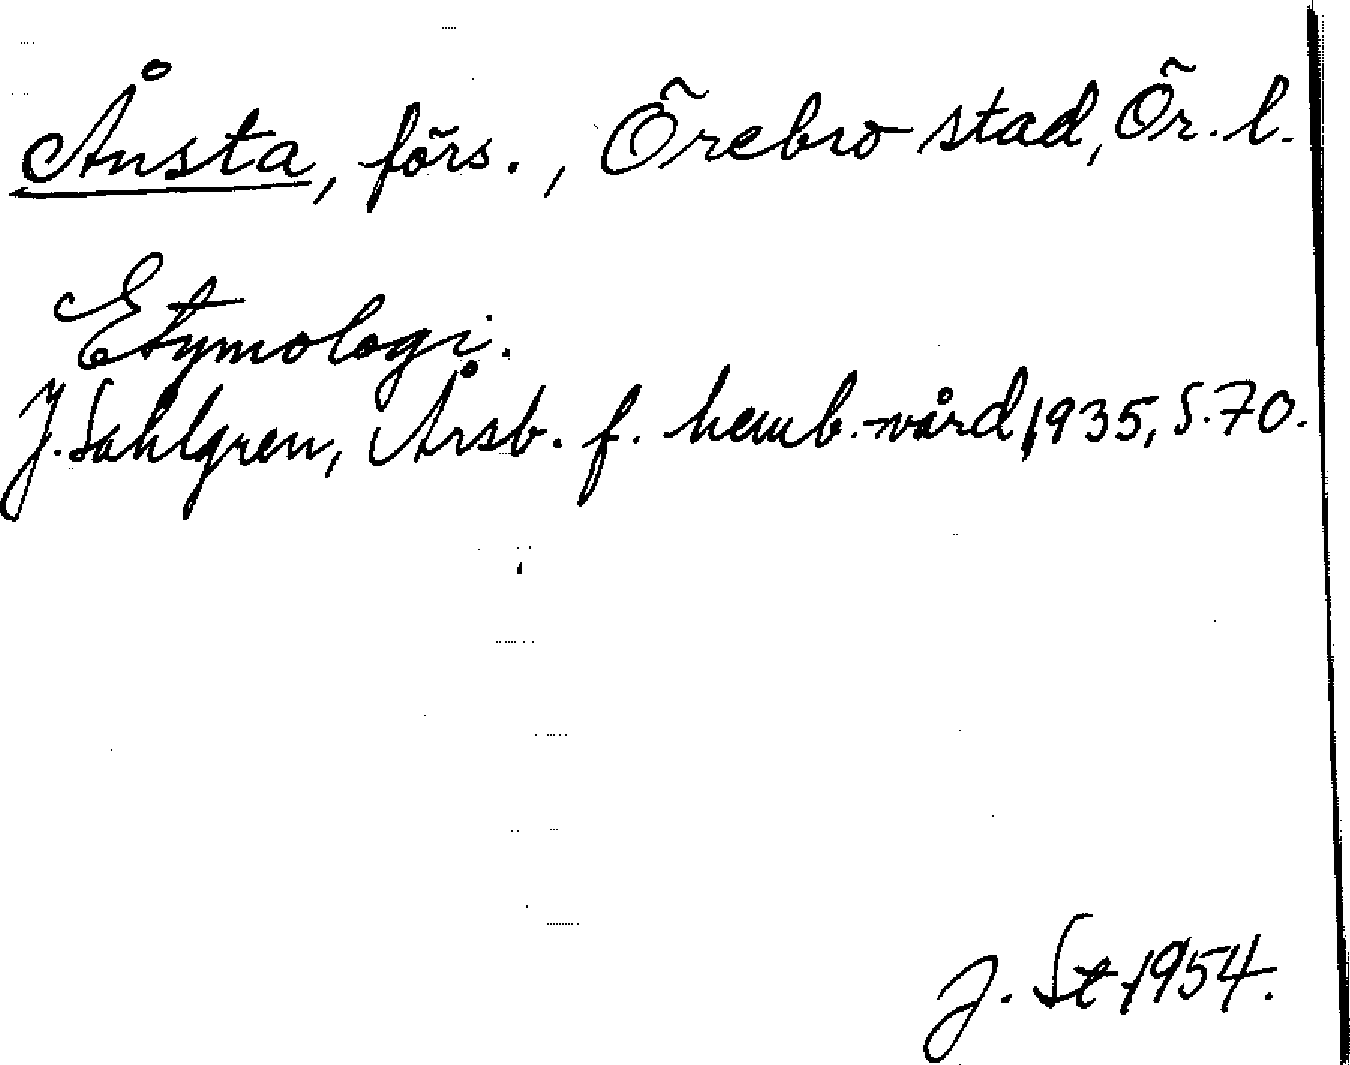 Ånsta, förs., Örebro stad, Ör. l.
Etymologi.
J. Sahlgren, Årsb. f. hemb.-vård 1935, S. 70.
J. St 1954.